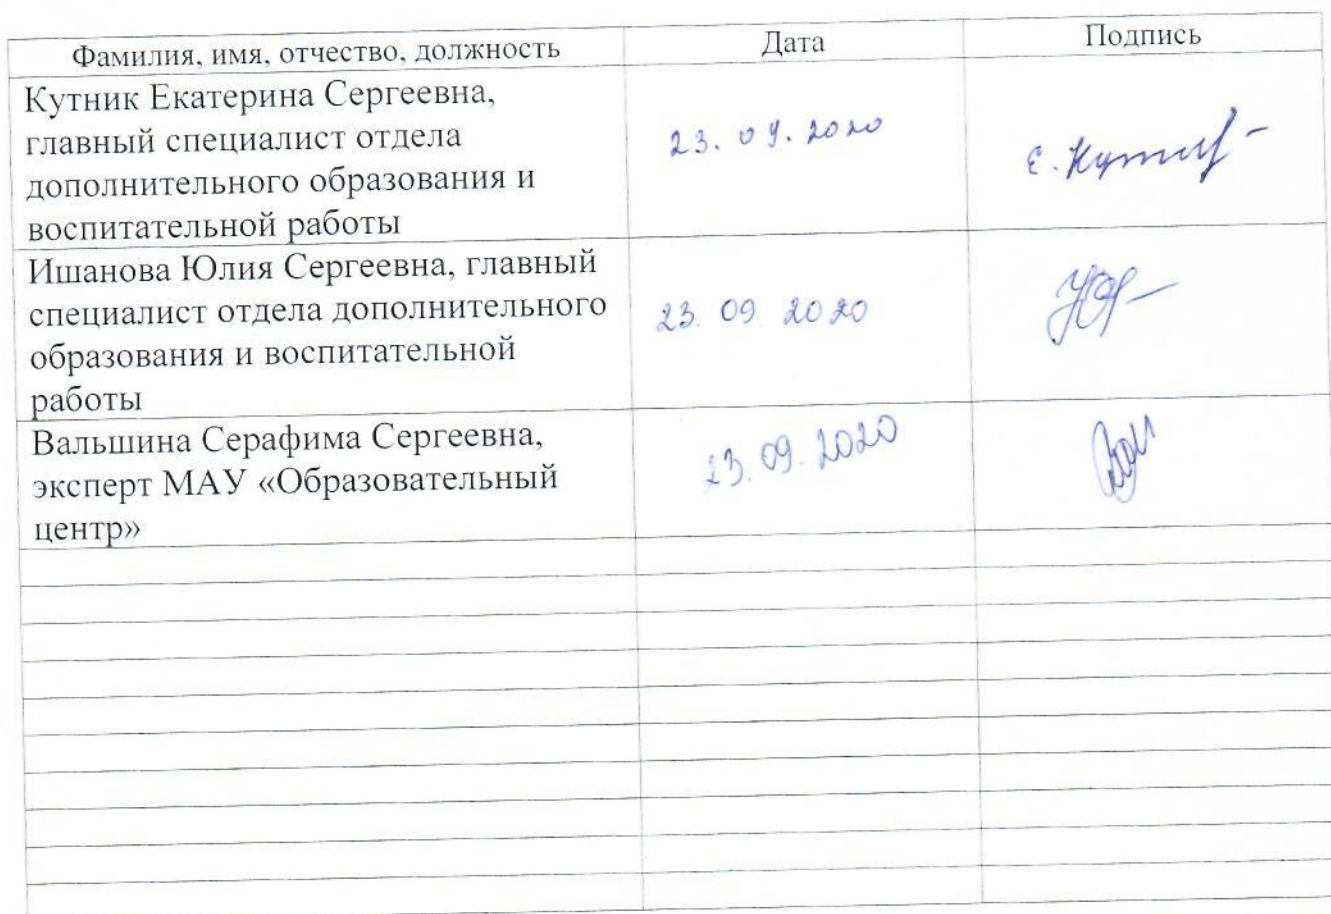 Фамилия, имя, отчество, должность Дата Подпись
Кутник Екатерина Сергеевна,
главный специалист отдела
дополнительного образования и
воспитательной работы
23.09.2020
Е. Кутник
Ишанова Юлия Сергеевна, главный
специалист отдела дополнительного
образования и воспитательной
работы
23.09.2020
Вальшина Серафима Сергеевна,
эксперт МАУ «Образовательный
центр»
23.09.2020